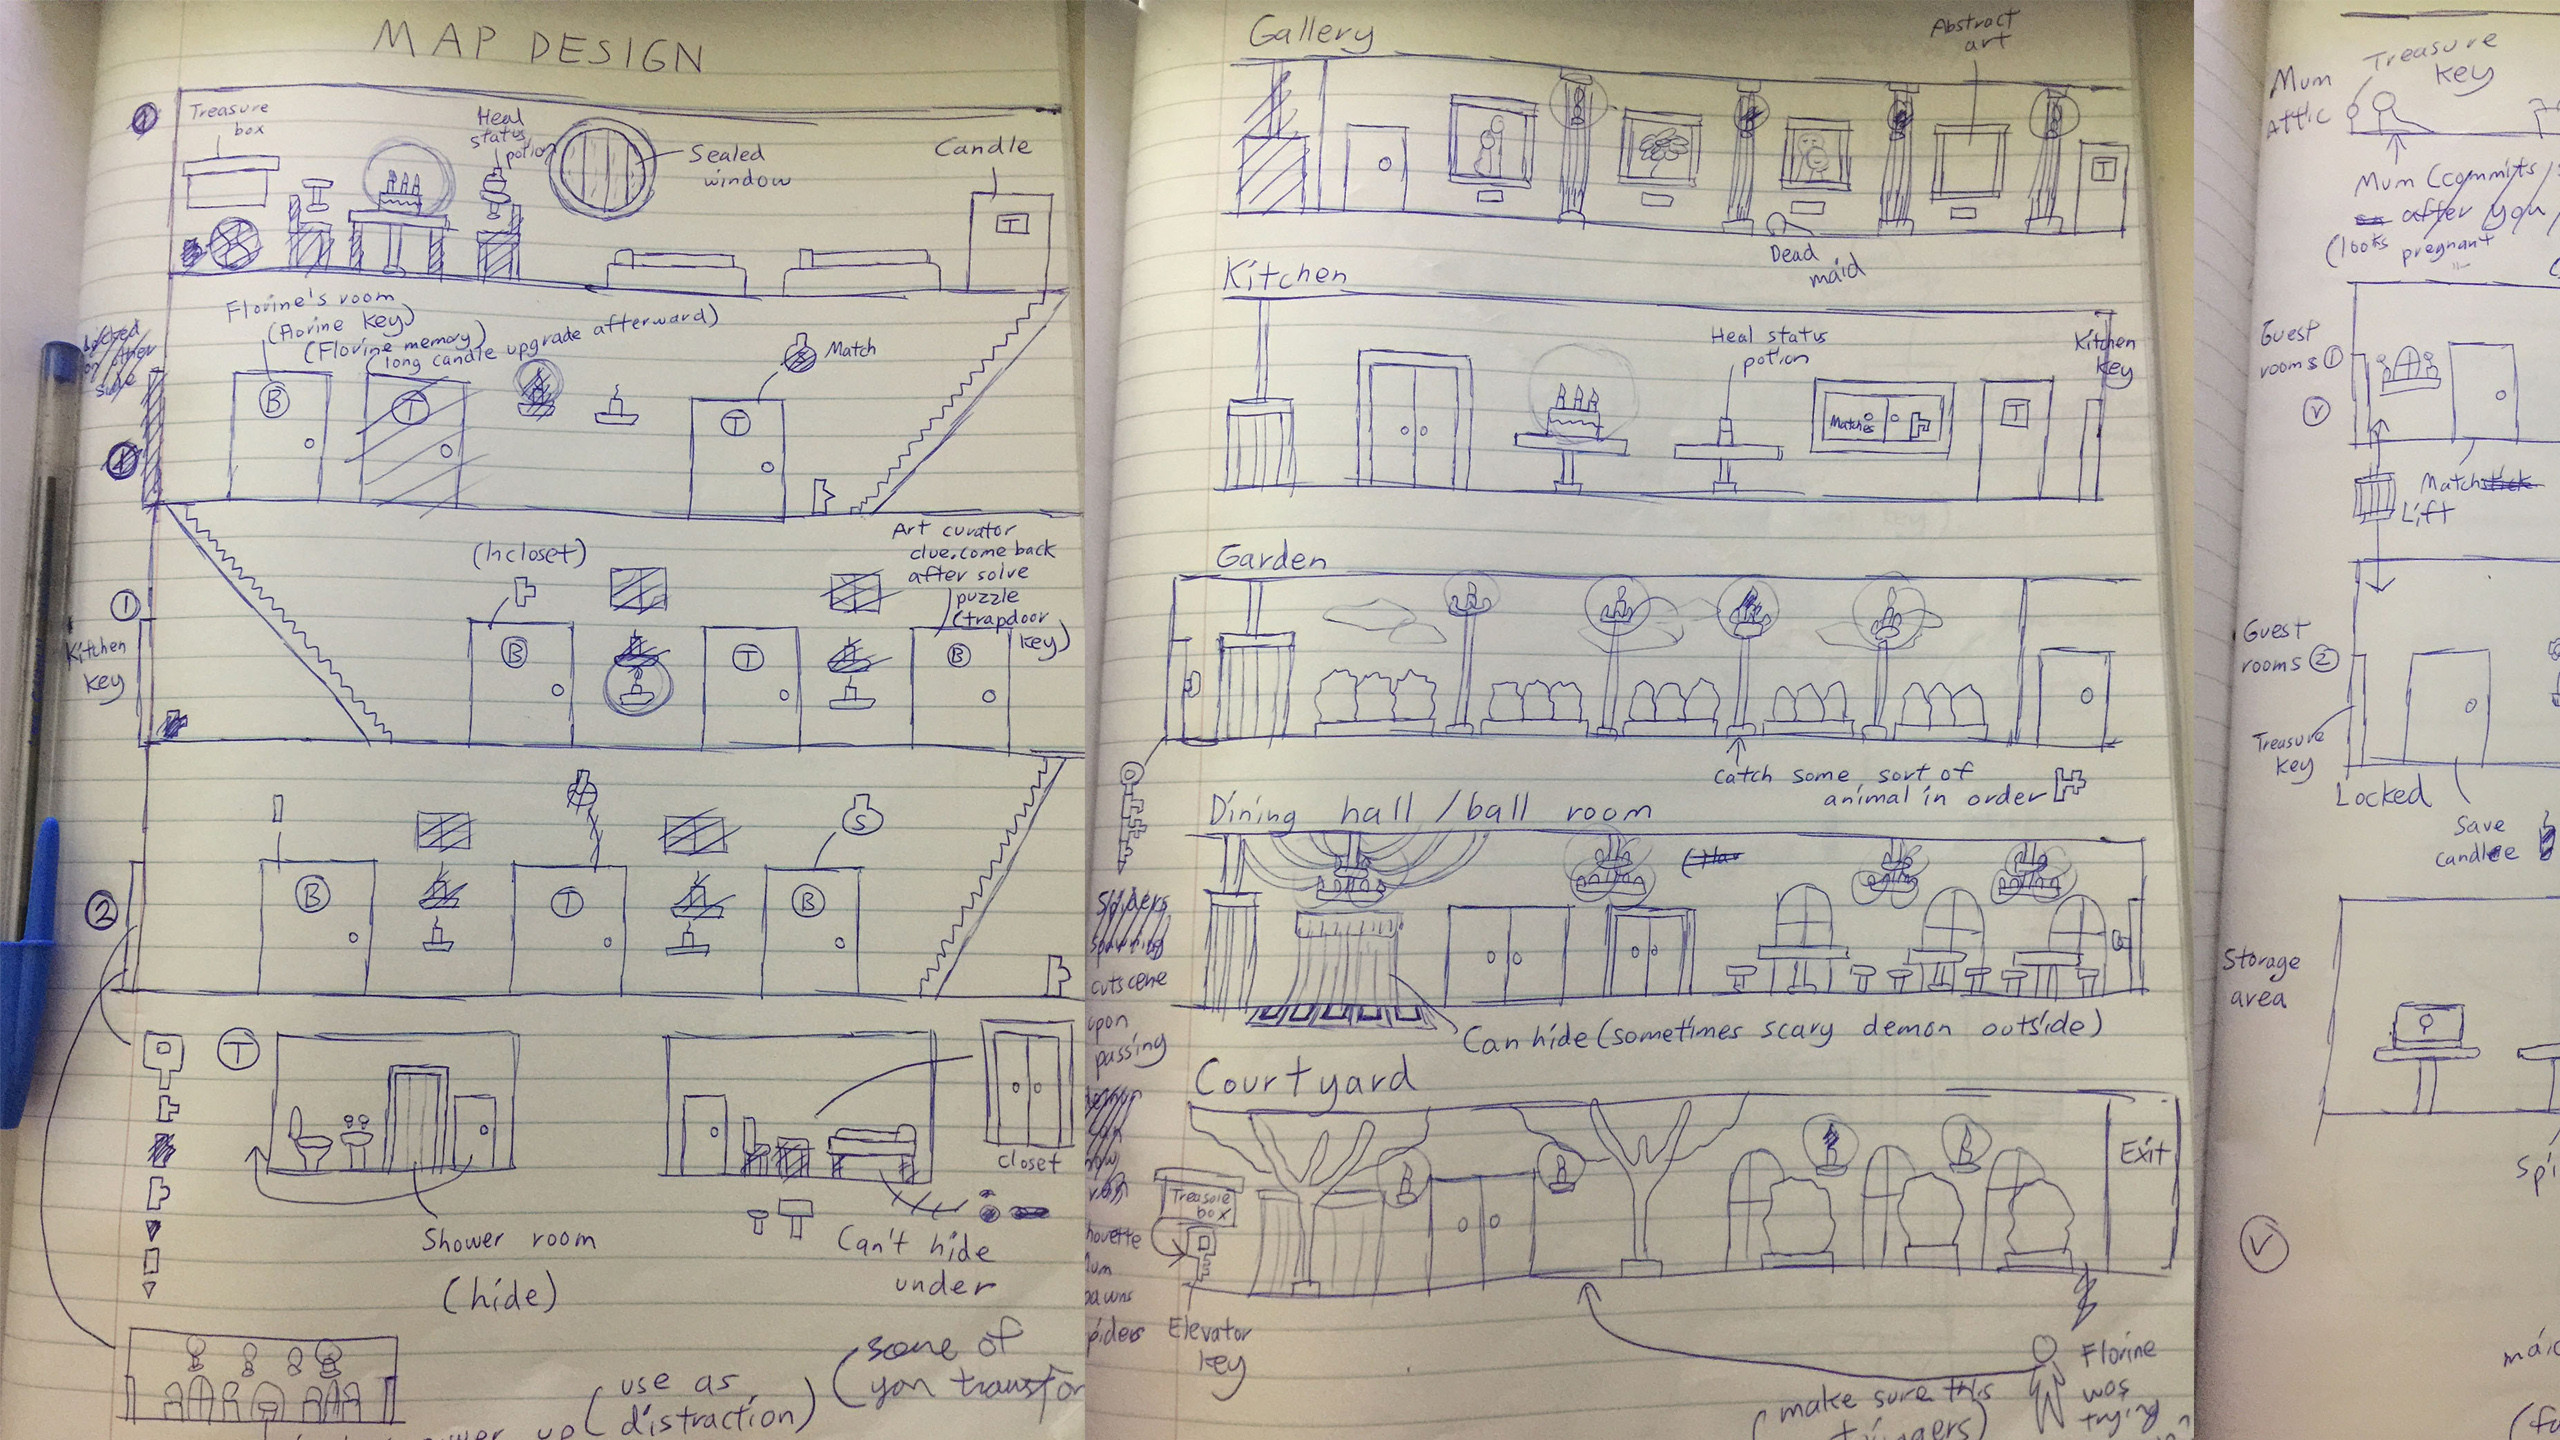 MAP DESIGN
Treasure
box
Heal
status
potion
Sealed
window
Candle
T
Florine's room
(Florine key)
(Florine memory)
long candle upgrade afterward)
Match
B
T
T
(In closet)
Art curator
clue, come back
after solve
puzzle
(trapdoor
key)
1
Kitchen
key
B
T
B
S
2
B
T
B
T
closet
Shower room
(hide)
Can't hide
under
(use as
distraction)
(some of
you transfor
Gallery
Abstract
art
T
Dead
maid
Kitchen
Heal status
potion
Kitchen
key
Matches
T
Garden
catch some sort of
animal in order
Dining hall / ball room
Spiders
spawning
cutscene
upon
passing
Can hide (sometimes scary demon outside)
Courtyard
Exit
Treasure
box
Elevator
key
Florine
was
trying
(make sure this
triggers)
Mum
Attic
Treasure
key
Mum (commits
after you
(looks pregnant
Guest
rooms 1
V
Match
Lift
Guest
rooms 2
Treasure
key
Locked
Save
candle
Storage
area
V